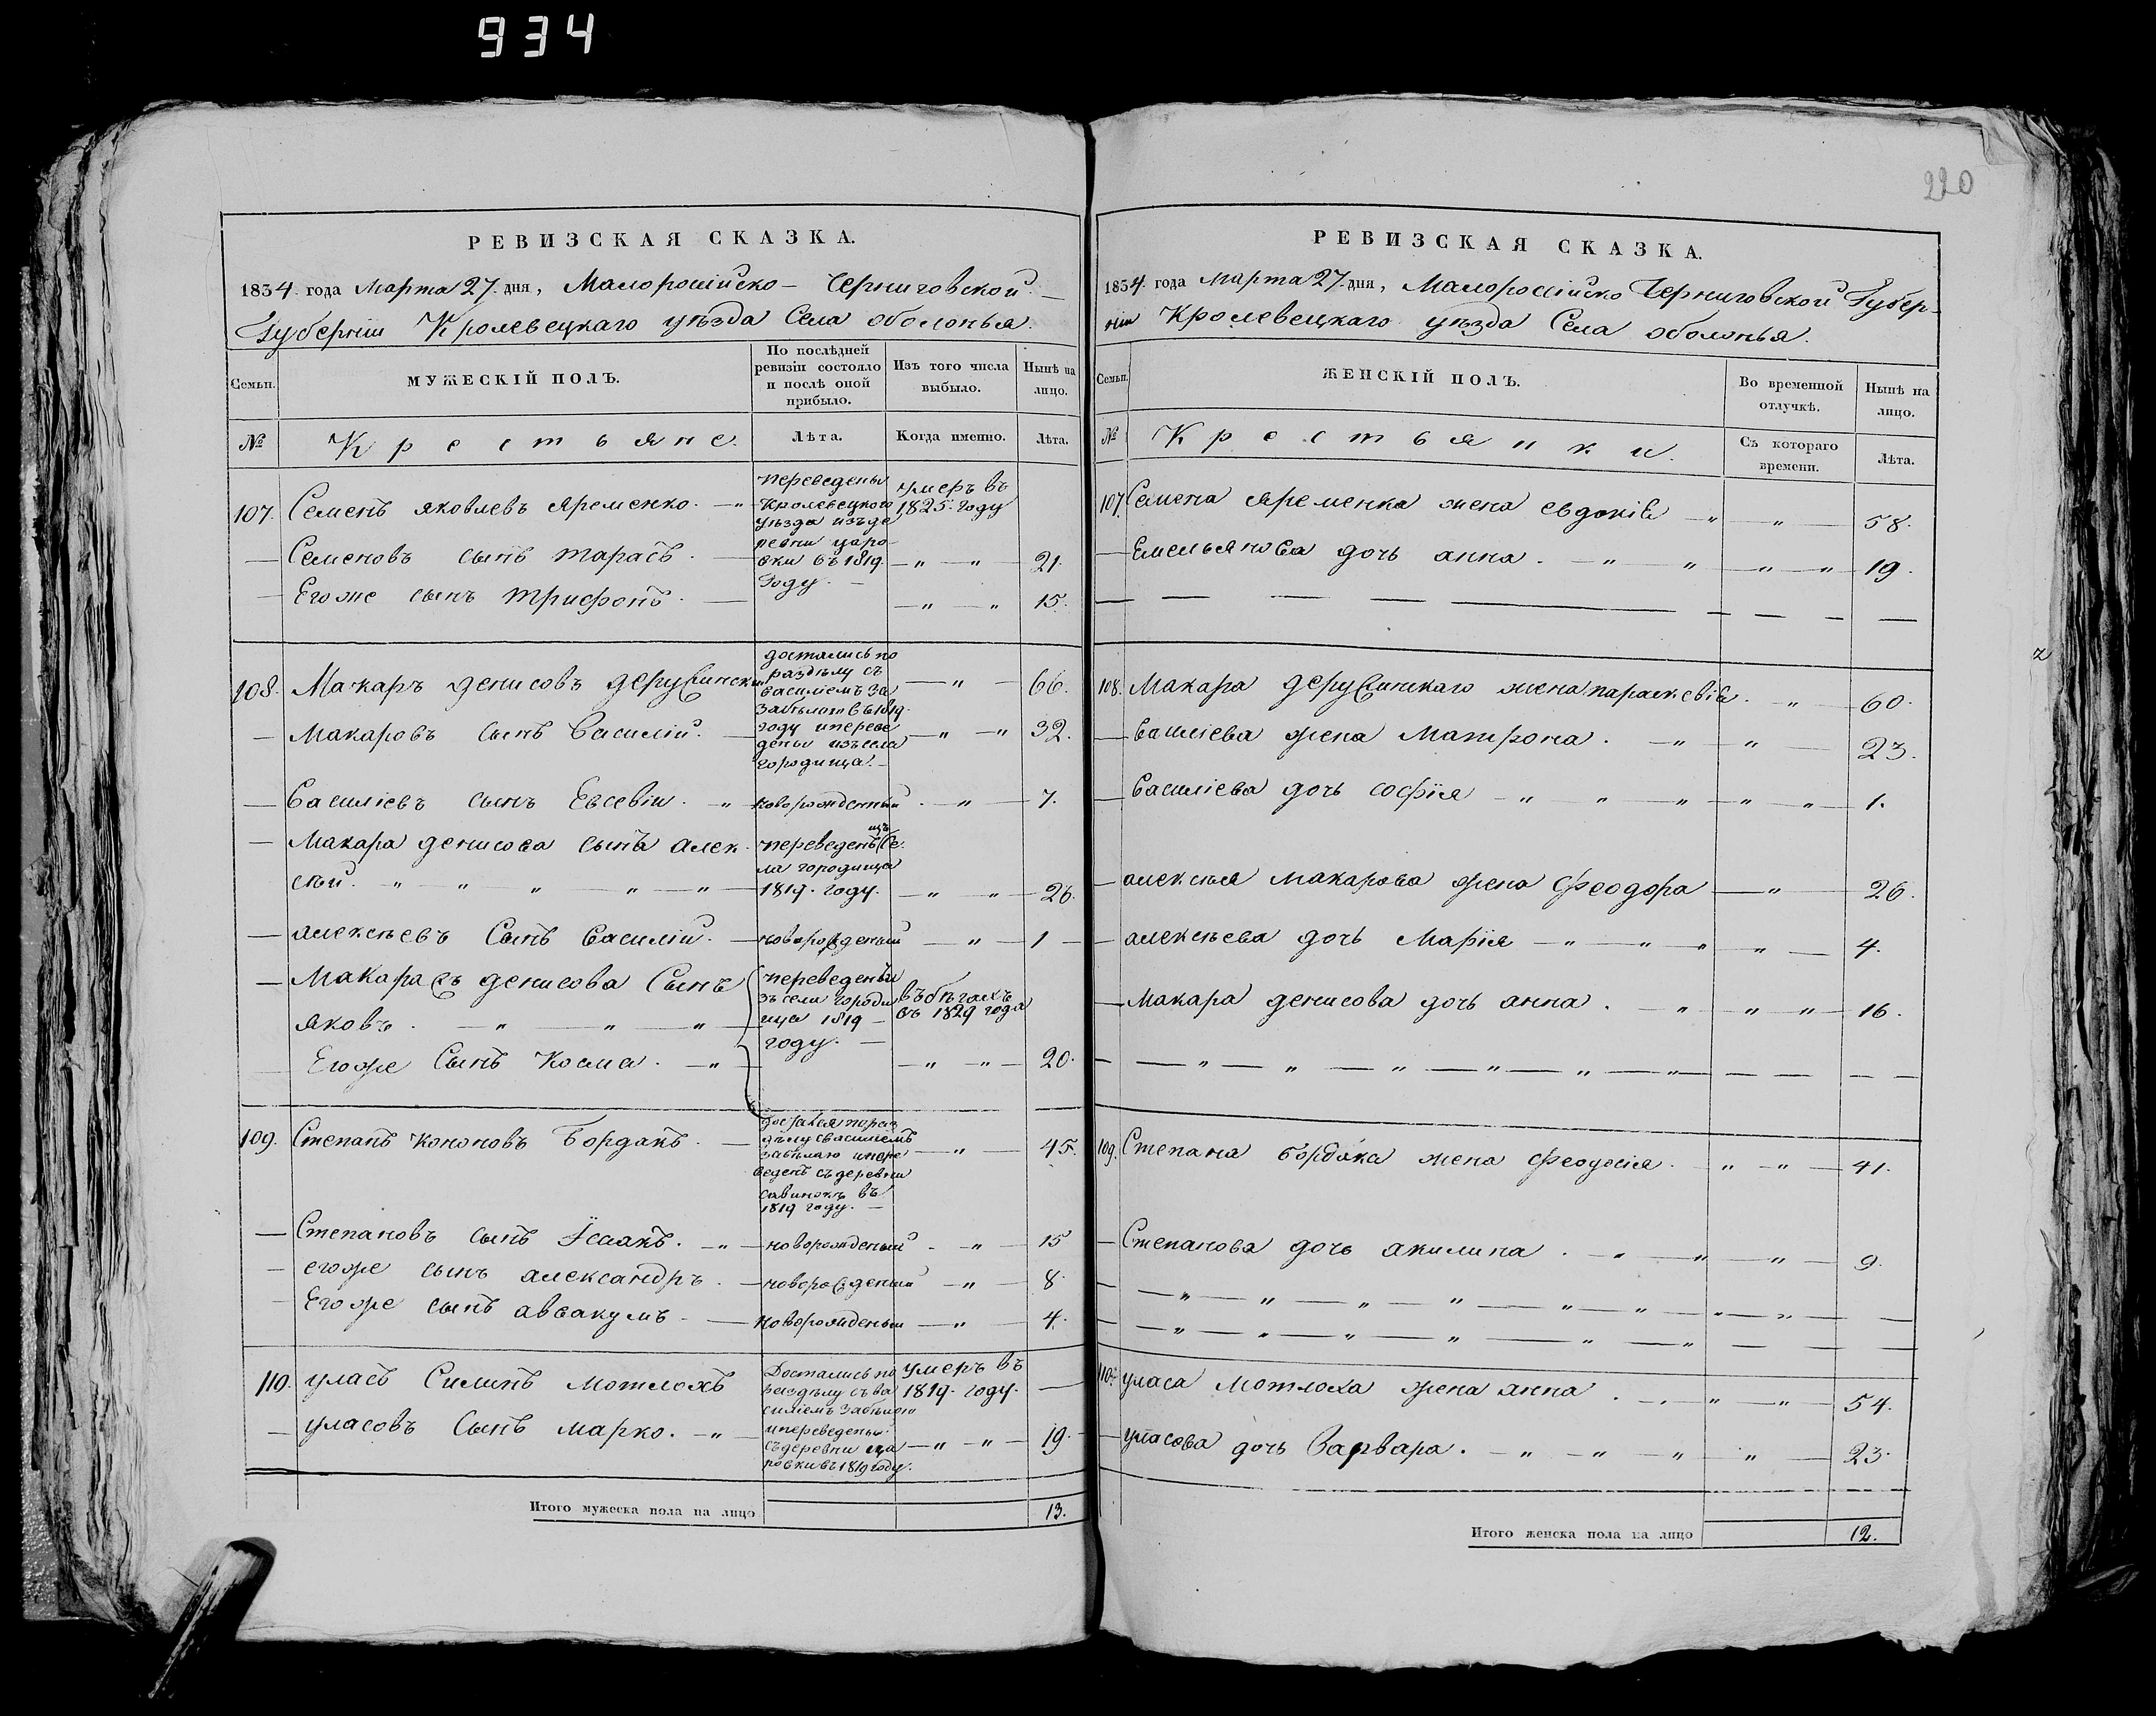 934
220
РЕВИЗСКАЯ СКАЗКА.
1834. года Марта 27. дня, Малоросiйско – Черниговской. –
Губернiи Кролевецкаго уѣзда Села оболонья.
Семьи.
МУЖЕСКIЙ ПОЛЪ.
По послѣдней ревизiи состояло и послѣ оной прибыло.
Изъ того числа выбыло.
Нынѣ на лицо.
№
Крестьяне.
Лѣта.
Когда именно.
Лѣта.
107. Семенъ яковлевъ яременко. — „
переведены
Кролевецкого
уѣзда изъ де
ревни царо
вки въ 1819.
Году. —
умеръ въ
1825. году
— Семеновъ сынъ тарасъ. — — „ — „ — 21.
— Егоже сынъ трифонъ. — — „ — „ 15.
108. Макаръ денисовъ дерусински
достались по
раздѣлу съ
василiемъ за
бѣлою въ 1819.
году и переве
дены изъ села
городища. —
— „ — 66.
— Макаровъ сынъ Василiй. — — „ — „ 32.
— Василiевъ сынъ Евсевiи. „ новорожденный. — „ — 7.
— Макара денисова сынъ алек
сѣй. „ „ „ „ — „
переведенъ изъ Се
ла городища
1819. году. — „ — „ — 26.
— алексѣевъ Сынъ Василiй. — новорожденый — „ — 1 —
— Макара съ денисова Сынъ
яковъ. — „ — „ — „
переведены и
зъ села городи
ща 1819 —
году. —
въ бѣгахъ
съ 1829 года
Егоже Сынъ Косма. — „ — „ — „ — 20.
109. Степанъ кононовъ Бордакъ. —
достался по раз
дѣлу с василiемъ
забѣлаю и пере
веденъ съ деревни
савинокъ въ
1819 году. —
— „ — 45.
— Степановъ сынъ Iсаакъ. — „ — новорожденый. — „ — 15
— егоже сынъ александръ. — новорожденый — „ — 8.
— Егоже сынъ аввакумъ. — новорожденыи — „ — 4.
110. уласъ Силинъ мотлохъ
Достались по
раздѣлу съ ва
силiемъ забѣлою
и переведены
съ деревни ца
ровки въ 1819 году.
умеръ въ
1819. году. —
— уласовъ Сынъ марко. — „ — — „ — „ — 19. —
Итого мужеска пола на лицо 13.
РЕВИЗСКАЯ СКАЗКА.
1834. года Марта 27. дня, Малоросiйско Черниговской Губер-
нiи Кролевецкаго уѣзда Села оболонья.
Семьи.
ЖЕНСКIЙ ПОЛЪ.
Во временной отлучкѣ.
Нынѣ на лицо.
№
Крестьянки.
Съ котораго времени.
Лѣта.
107. Семена яременка жена евдокiя „ — „ — 58.
— Емельянова дочь анна. — „ — „ — „ — „ — 19.
108. Макара дерусинскаго жена параскевiя. — „ — 60.
— Василiева жена Матрона. — „ — „ — 23.
— Василiева дочь софiя — „ „ — „ — „ — „ — 1.
— алексѣя макарова жена Феодора — „ — 26.
— алексѣева дочь Марiя — „ — „ — „ „ — 4.
— Макара денисова дочь анна. — „ — „ — „ — 16.
109. Степана бордака жена Феодосiя. — „ — „ — 41.
— Степанова дочь акилина. — „ — „ — „ — 9.
110. уласа мотлоха жена анна. — „ — „ — „ — 54.
— уласова дочь Варвара. — „ — „ — „ — „ — 23.
Итого женска пола на лицо 12.